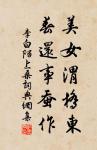 美女渭橋東
春還事蚕作
李白陌上桑詞典網集